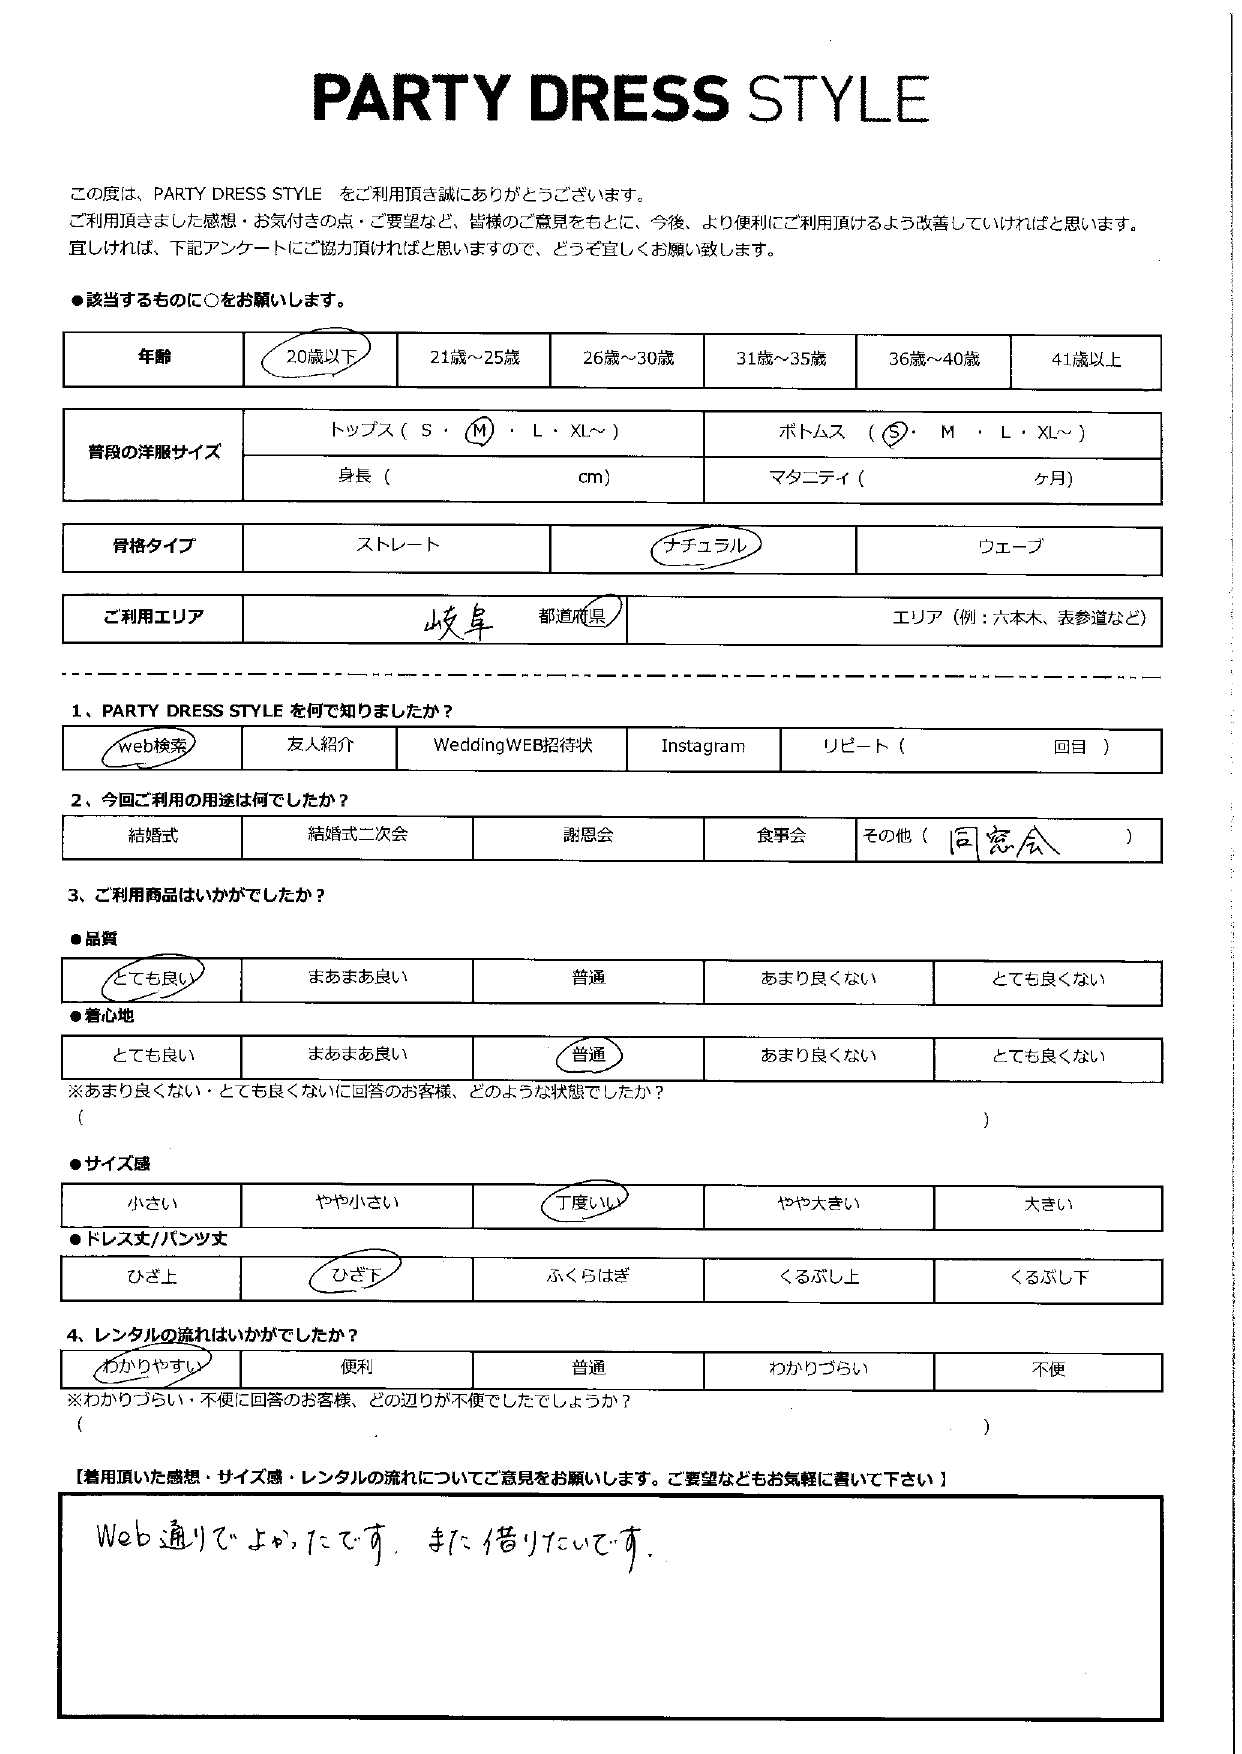 PARTY DRESS STYLE
この度は、PARTY DRESS STYLE　をご利用頂き誠にありがとうございます。
ご利用頂きました感想・お気付きの点・ご要望など、皆様のご意見をもとに、今後、より便利にご利用頂けるよう改善していければと思います。
宜しければ、下記アンケートにご協力頂ければと思いますので、どうぞ宜しくお願い致します。
●該当するものに〇をお願いします。
年齢 20歳以下 21歳～25歳 26歳～30歳 31歳～35歳 36歳～40歳 41歳以上
普段の洋服サイズ
トップス ( S ・ M ・ L ・ XL～ ) ボトムス ( S ・ M ・ L ・ XL～ )
身長 ( cm) マタニティ ( ヶ月)
骨格タイプ ストレート ナチュラル ウェーブ
ご利用エリア 岐阜 都道府県 エリア（例：六本木、表参道など）
1、PARTY DRESS STYLE を何で知りましたか？
web検索 友人紹介 WeddingWEB招待状 Instagram リピート ( 回目 )
2、今回ご利用の用途は何でしたか？
結婚式 結婚式二次会 謝恩会 食事会 その他 ( 同窓会 )
3、ご利用商品はいかがでしたか？
●品質
とても良い まあまあ良い 普通 あまり良くない とても良くない
●着心地
とても良い まあまあ良い 普通 あまり良くない とても良くない
※あまり良くない・とても良くないに回答のお客様、どのような状態でしたか？
( )
●サイズ感
小さい やや小さい 丁度いい やや大きい 大きい
●ドレス丈/パンツ丈
ひざ上 ひざ下 ふくらはぎ くるぶし上 くるぶし下
4、レンタルの流れはいかがでしたか？
わかりやすい 便利 普通 わかりづらい 不便
※わかりづらい・不便に回答のお客様、どの辺りが不便でしたでしょうか？
( )
【着用頂いた感想・サイズ感・レンタルの流れについてご意見をお願いします。ご要望などもお気軽に書いて下さい 】
Web通りでよかったです. また借りたいです.